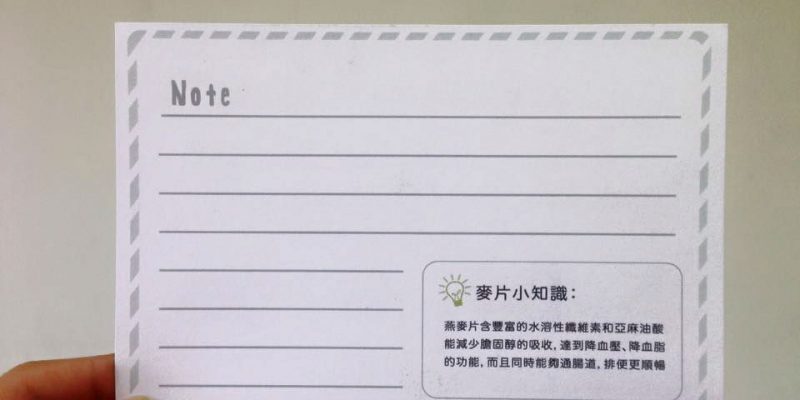 Note
麥片小知識：
燕麥片含豐富的水溶性纖維素和亞麻油酸
能減少膽固醇的吸收，達到降血壓、降血脂
的功能，而且同時能夠通腸道，排便更順暢